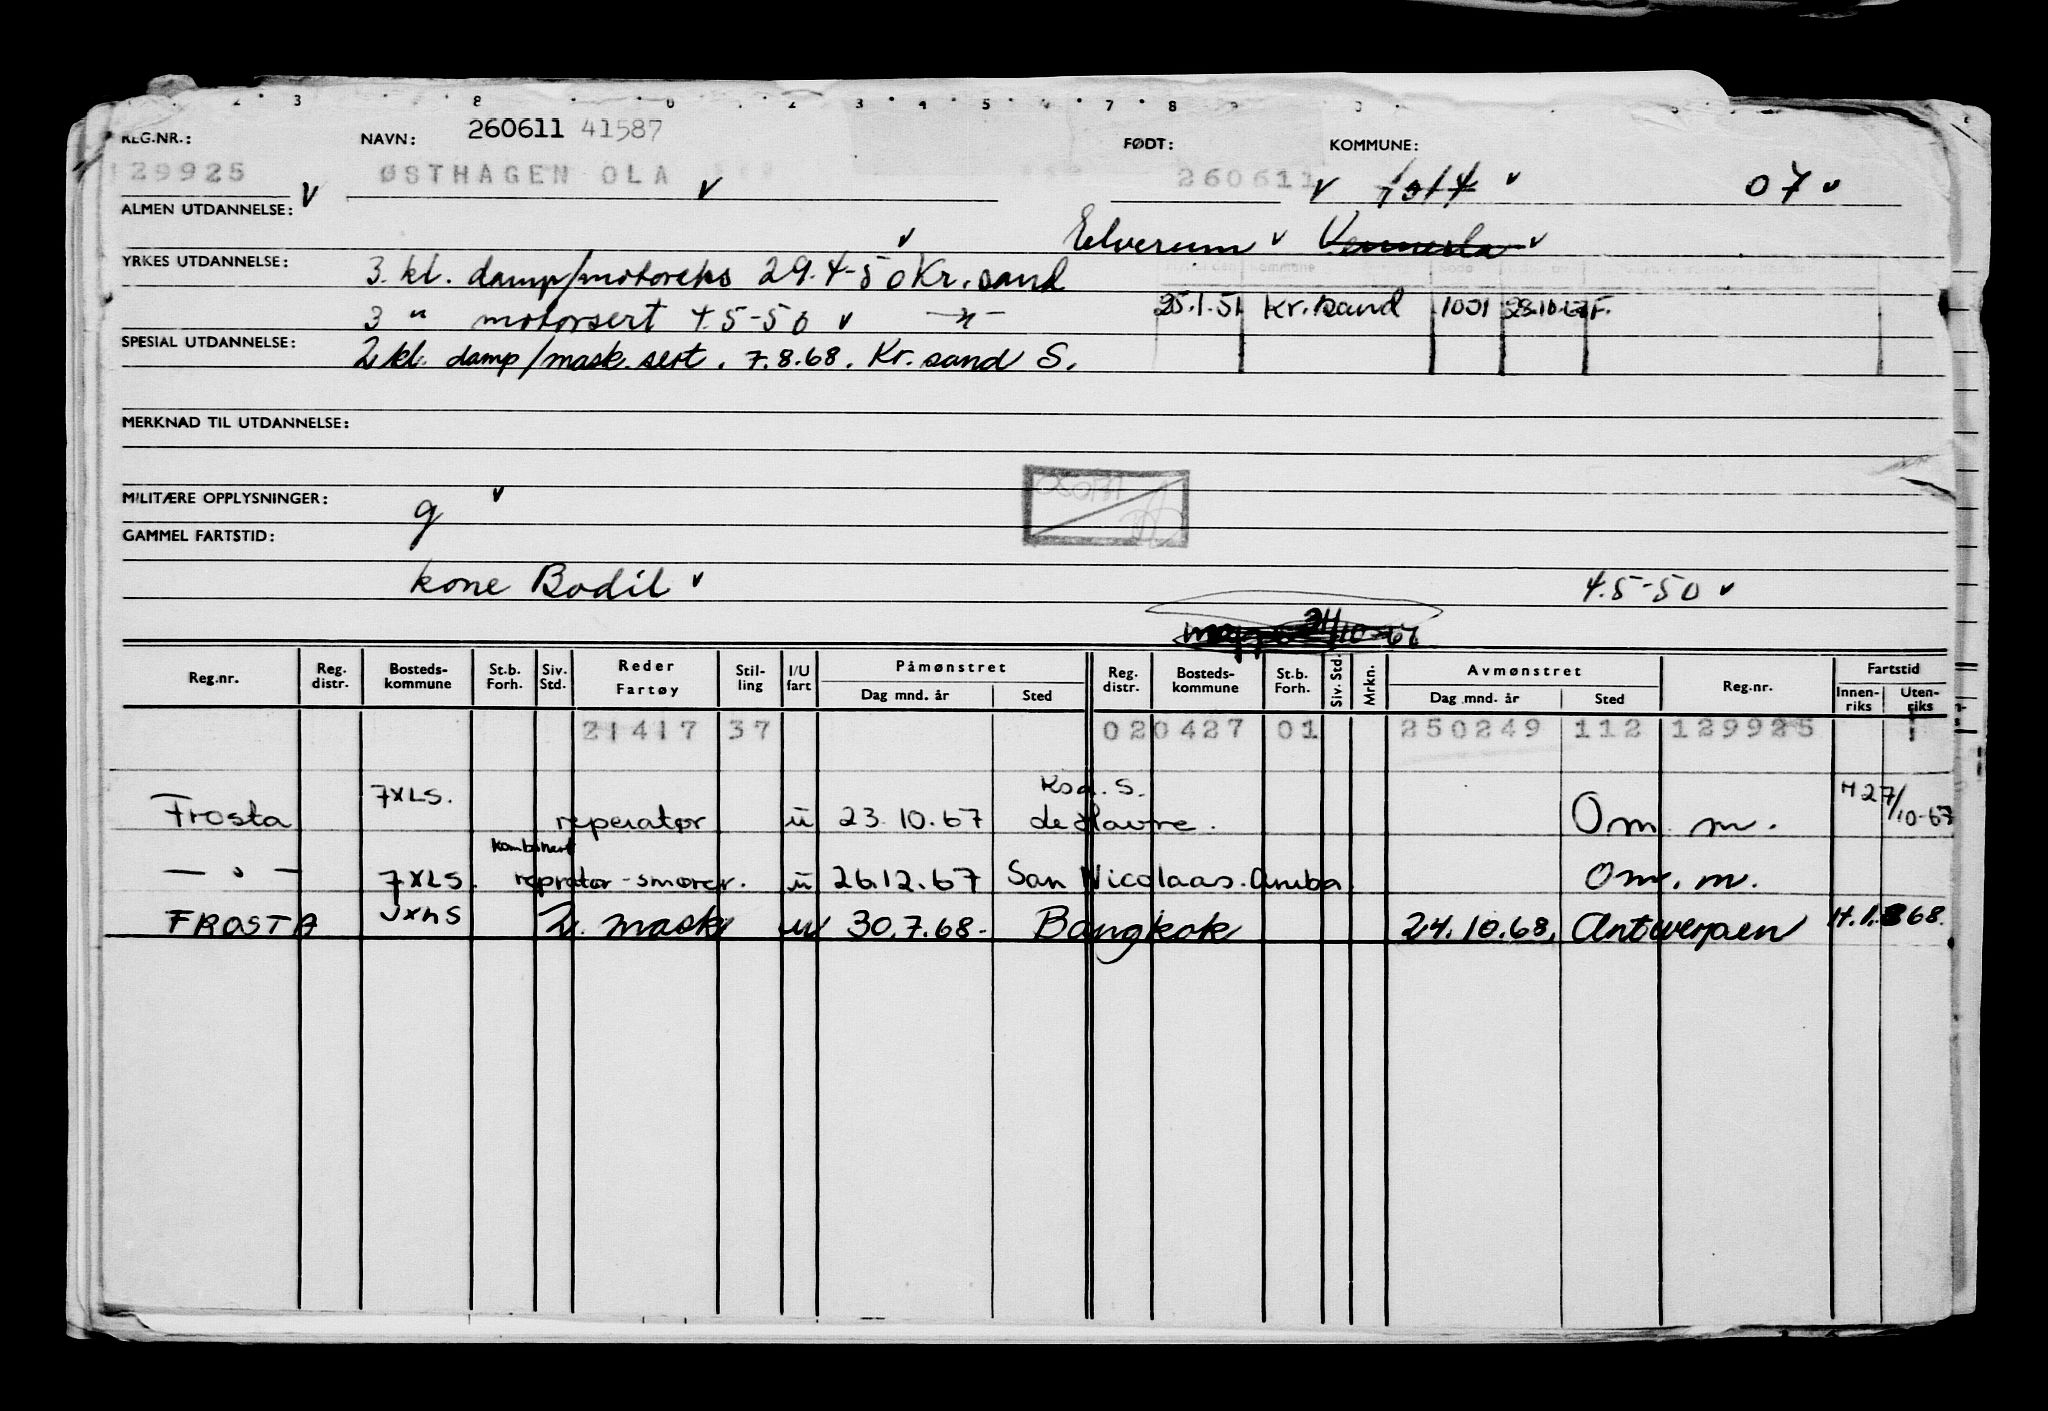 REG.NR.: NAVN: 260611 41587 FØDT: KOMMUNE:
129925 ØSTHAGEN OLA 260611 1014 07
ALMEN UTDANNELSE:
Elverum Vennesla
YRKES UTDANNELSE: 3. kl. damp/motoreks 29.4-50 Kr.sand
3 " motorsert 4.5-50 —"— 25.1.51 Kr.sand 1001 23.10.67 F.
SPESIAL UTDANNELSE: 2 kl. damp/mask. sert. 7.8.68. Kr.sand S.
MERKNAD TIL UTDANNELSE:
MILITÆRE OPPLYSNINGER: g
GAMMEL FARTSTID:
kone Bodil 4.5-50
24/10-67
Reg.nr. Reg. distr. Bosteds-kommune St.b. Forh. Siv. Std. Reder Fartøy Stil-ling I/U fart Påmønstret Dag mnd. år Sted Reg. distr. Bosteds-kommune St.b. Forh. Siv. Std. Mrkn. Avmønstret Dag mnd. år Sted Reg.nr. Fartstid Innen-riks Uten-riks
21417 37 020427 01 250249 112 129925 1
Frosta 7XLS. reperatør u 23.10.67 Ksd. S. de Havre. Om. m. H 27/10-67
— " — 7XLS. kombinert repratør-smører. u 26.12.67 San Nicolaas. Aruba Om. m.
FROSTA JXLS 2. mask u 30.7.68- Bangkok 24.10.68. Antwerpen H.1.868.